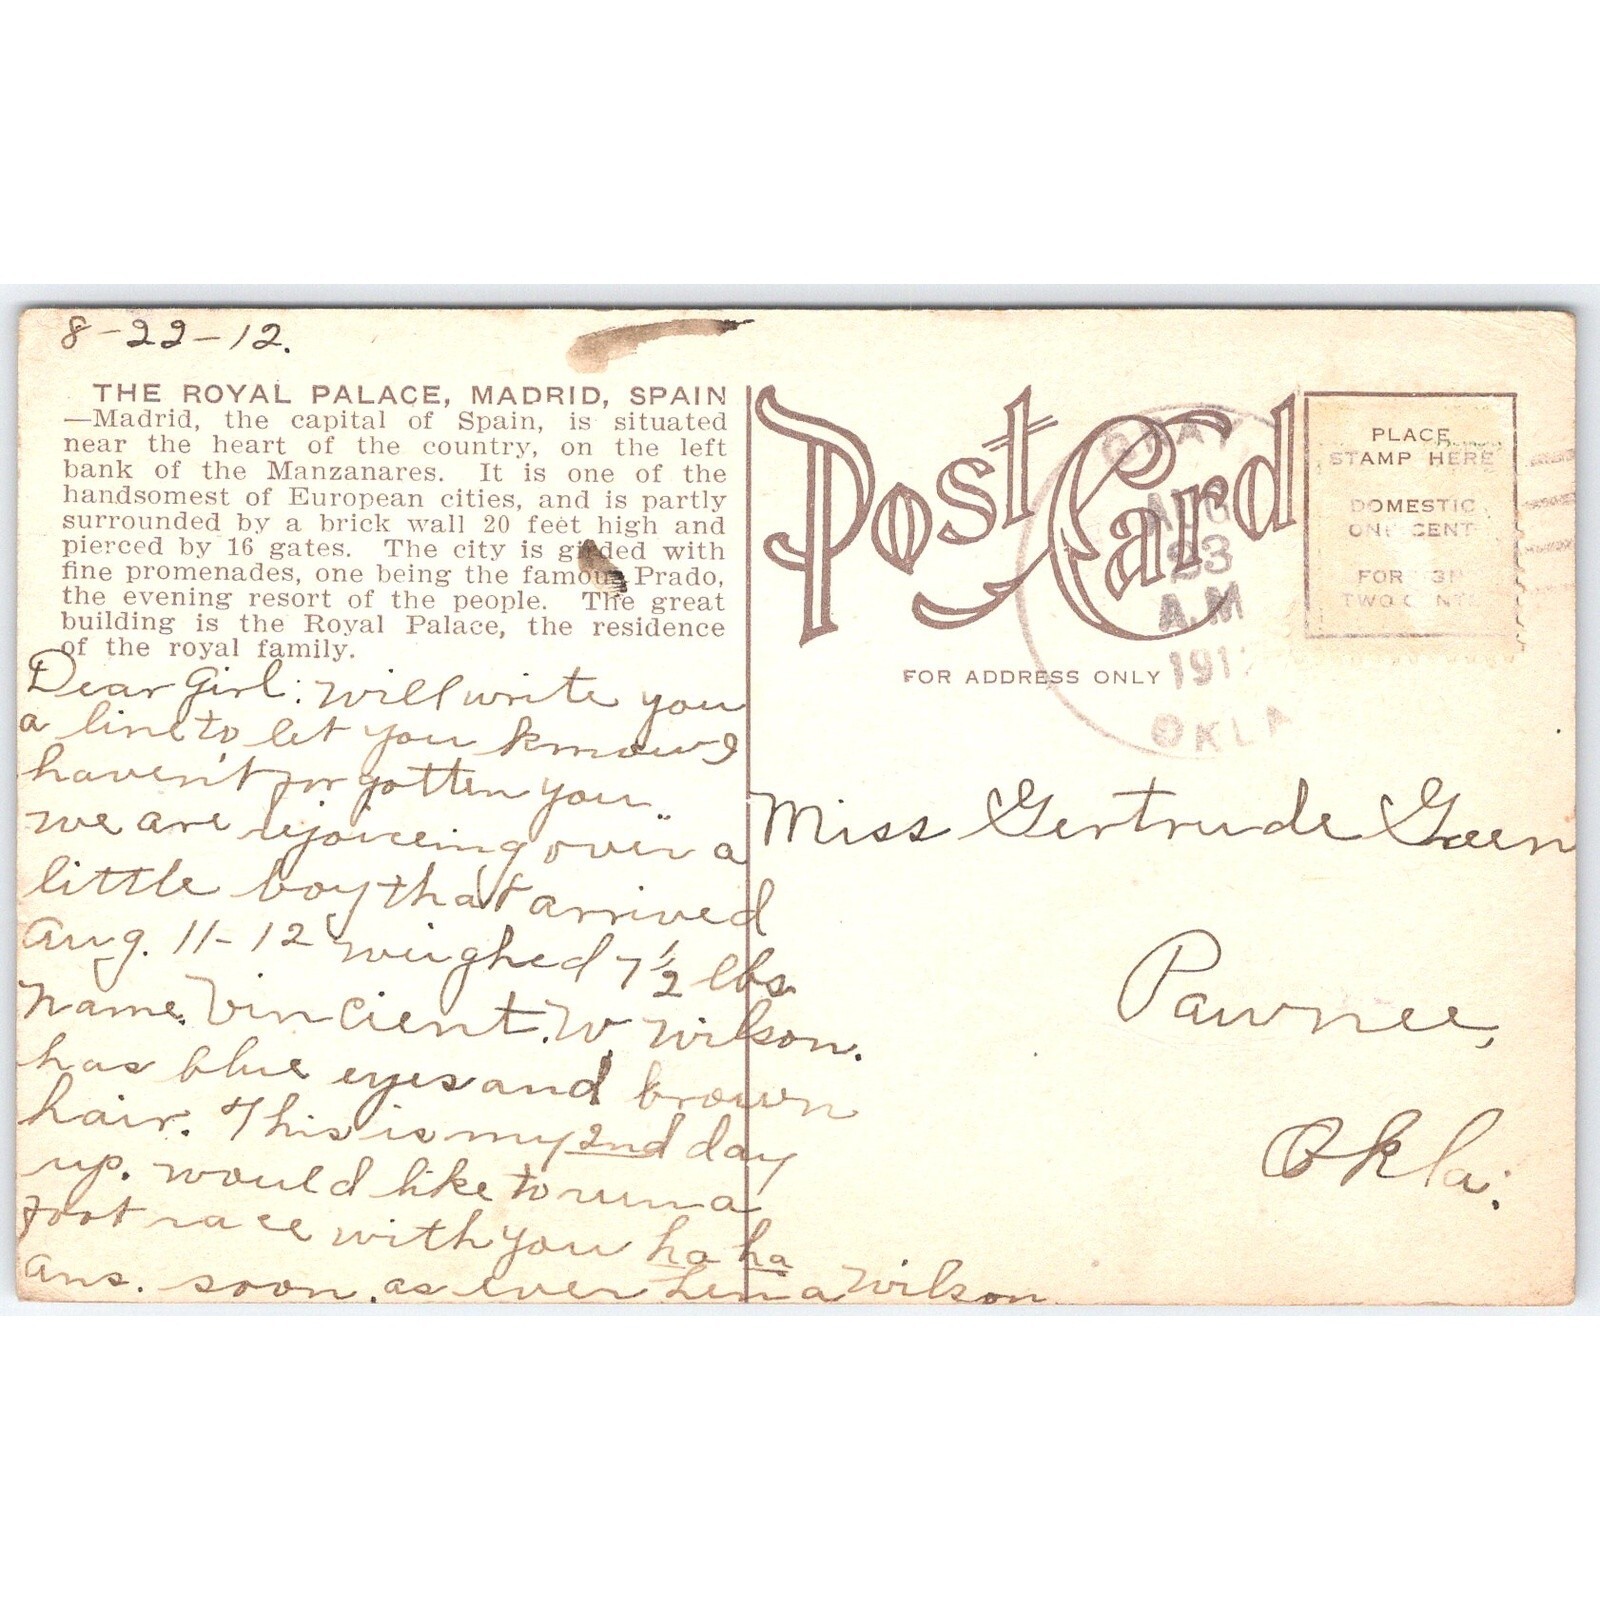 8-22-12.
THE ROYAL PALACE, MADRID, SPAIN
—Madrid, the capital of Spain, is situated
near the heart of the country, on the left
bank of the Manzanares. It is one of the
handsomest of European cities, and is partly
surrounded by a brick wall 20 feet high and
pierced by 16 gates. The city is girded with
fine promenades, one being the famous Prado,
the evening resort of the people. The great
building is the Royal Palace, the residence
of the royal family.
Dear Girl: will write you
a line to let you know I
haven't forgotten you.
we are rejoiceing over a
little boy that arrived
Aug. 11-12 weighed 7½ lbs.
Name. Vincient. W Wilson.
has blue eyes and brown
hair. This is my 2nd day
up. would like to run a
foot race with you ha ha
ans. soon. as ever Lena Wilson
Post Card
FOR ADDRESS ONLY
PLACE
STAMP HERE
DOMESTIC
ONE CENT
FOR
TWO CENTS
AUG
23
A.M
191
OKLA
Miss Gertrude Green
Pawnee,
Okla.